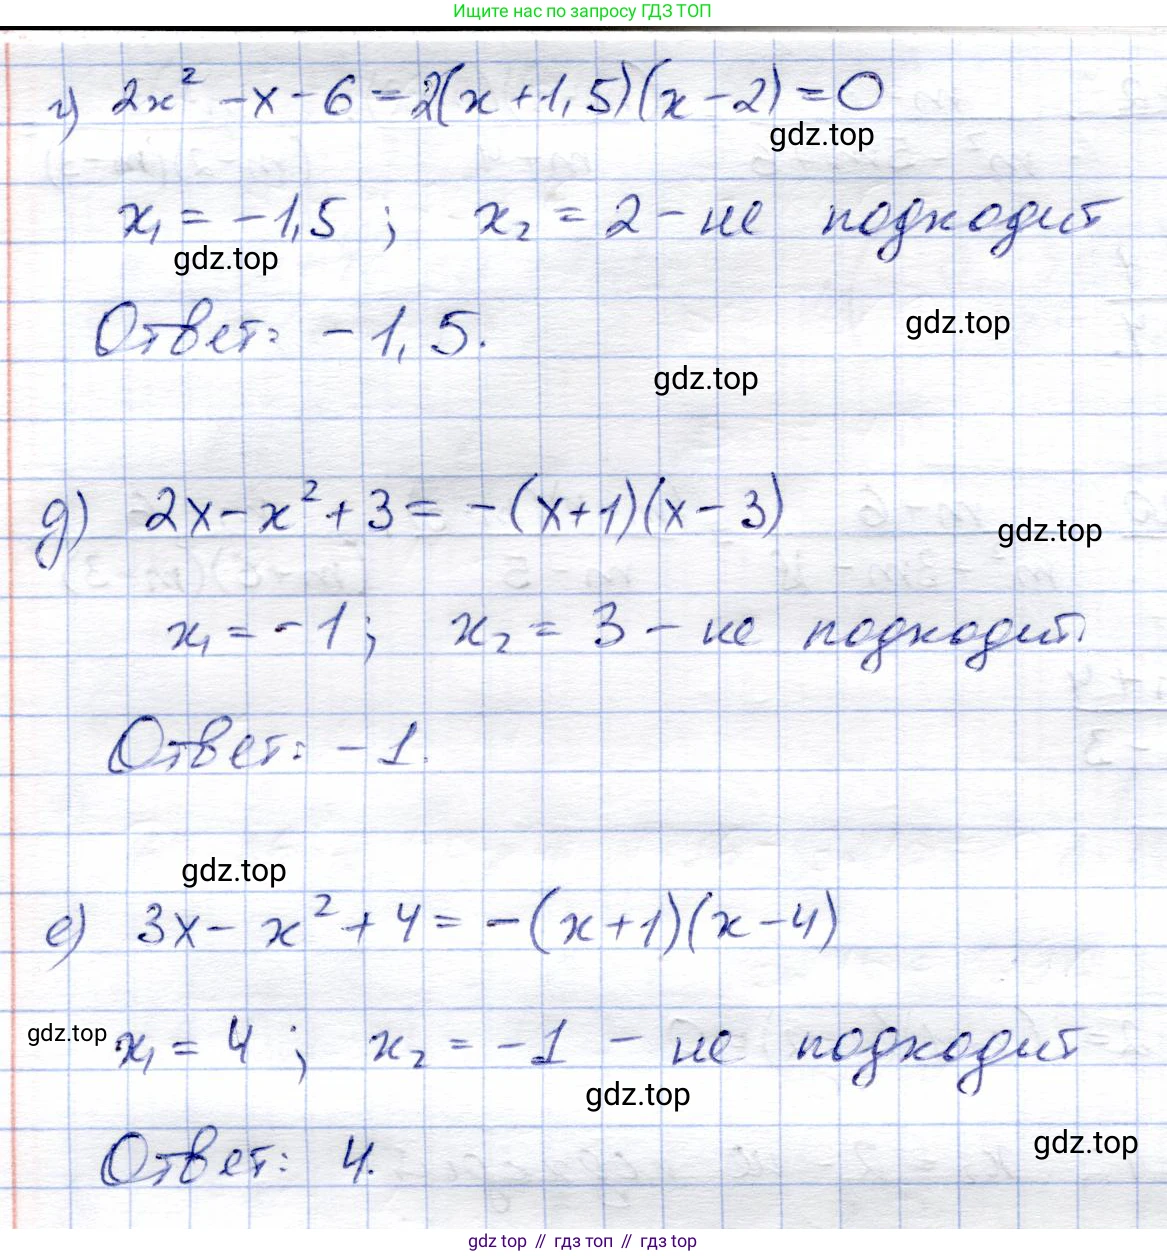 Ищите нас по запросу ГДЗ ТОП
г) 2x² - x - 6 = 2(x + 1,5)(x - 2) = 0
gdz.top
x₁ = -1,5 ; x₂ = 2 - не подходит
gdz.top
Ответ: -1,5.
gdz.top
gdz.top
д) 2x - x² + 3 = -(x+1)(x - 3)
gdz.top
x₁ = -1 ; x₂ = 3 - не подходит.
Ответ: -1.
gdz.top
е) 3x - x² + 4 = -(x+1)(x-4)
gdz.top x₁ = 4 ; x₂ = -1 - не подходит
gdz.top
Ответ: 4.
gdz.top
gdz top // гдз топ // гдз top